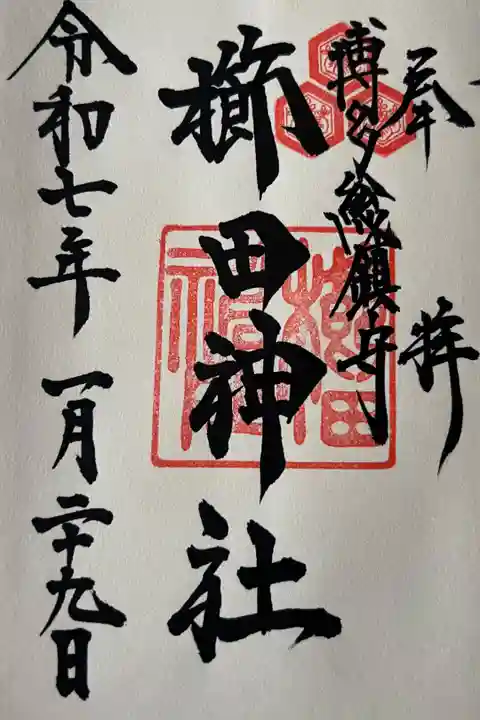 奉拝
博多總鎮守
櫛田神社
令和七年一月二十九日
櫛田神社